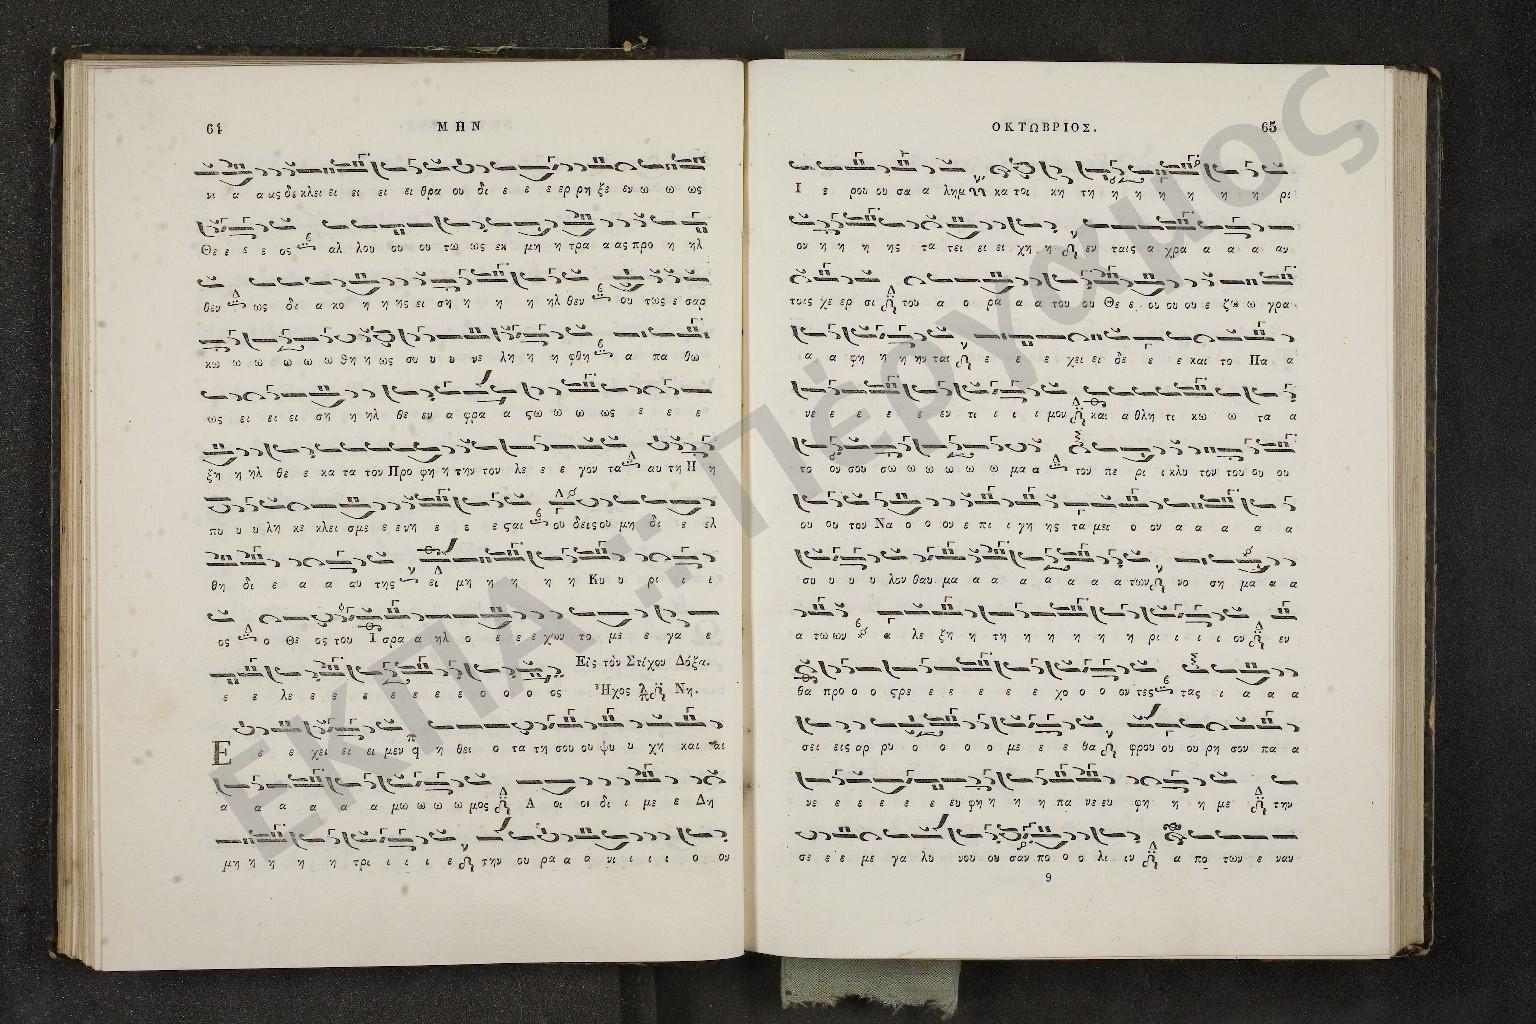 64
ΜΗΝ
νι α α ας δε κλει ει ει ει ει θρα ου δι ε ε ε ερ ρη ξε εν ω ω ως
Θε ε ε ε ος αλ λου ου ου τω ως εκ μη η τρα α ας προ η ηλ
θεν ως δι α κο η η ης ει ση η η η ηλ θεν ου τως ε σαρ
κω ω ω ω ω ω θη η ως συ υ υ νε λη η η φθη α πα θω
ως ει ει ει ση η ηλ θε εν α φρα α ςω ω ω ως ε ε ε
ξη η ηλ θε ε κα τα τον Προ φη η την τον λε ε ε γον τα αυ τη Π η
πυ υ υ λη κε κλει σμε ε ε νη ε ε ε ςαι ου δεις ου μη δι ε ελ
θη δι ε α α αυ της ει μη η η η η Κυ υ ρι ι ι
ος ο Θε ος του Ι σρα α ηλ ο ε ε ε χων το με ε γα ε
ε ε λε ε ε ε ε ε ε ε ε ο ο ο ος
Εἰς τὸν Στίχον Δόξα.
Ἦχος Νη.
Ε ε ε χει ει ει μεν φ η θει ο τα τη σου ου ψυ υ χη και αι
α α α α α α μω ω ω ω μος Α οι οι δι ι με ε Δη
μη η η η η τρι ι ι ι ε την ου ρα α α νι ι ι ι ο ου
ΟΚΤΩΒΡΙΟΣ.
65
Ι ε ρου ου σα α λημ κα τοι κη τη η η η η η η η ρι
ον η η η ης τα τει ει ει χη η εν ταις α χρα α α α αν
τοις χε ερ σι του α ο ρα α α του ου Θε ε ου ου ου ε ζω ω γρα
α α φη η η ην ται ε ε ε χει ει δε ε ε και το Πα α
νε ε ε ε ε εν τι ι ι ι μον και α θλη τι κω ω τα α
το ου σου σω ω ω ω ω ω μα α τον πε ρι ι κλυ τον του ου ου
ου ου τον Να ο ο ον ε πι ι γη ης τα μει ο ον α α α α α
συ υ υ υ λον θαυ μα α α α α α α α των νο ση μα α α
α τω ων κ α λε ξη η τη η η η η η η ρι ι ι ι ον εν
θα προ ο ο ςρε ε ε ε ε ε χο ο ο ον τες τας ι α α α
σει εις αρ ρυ ο ο ο ο με ε ε θα φρου ου ου ρη σον πα α
νε ε ε ε ε ε ευ φη η η η πα νε ευ φη η η με την
σε ε ε με γα λυ νου ου σαν πο ο ο λι ιν α πο των ε ναν
9
ΕΚΠΑ :: Πέργαμος